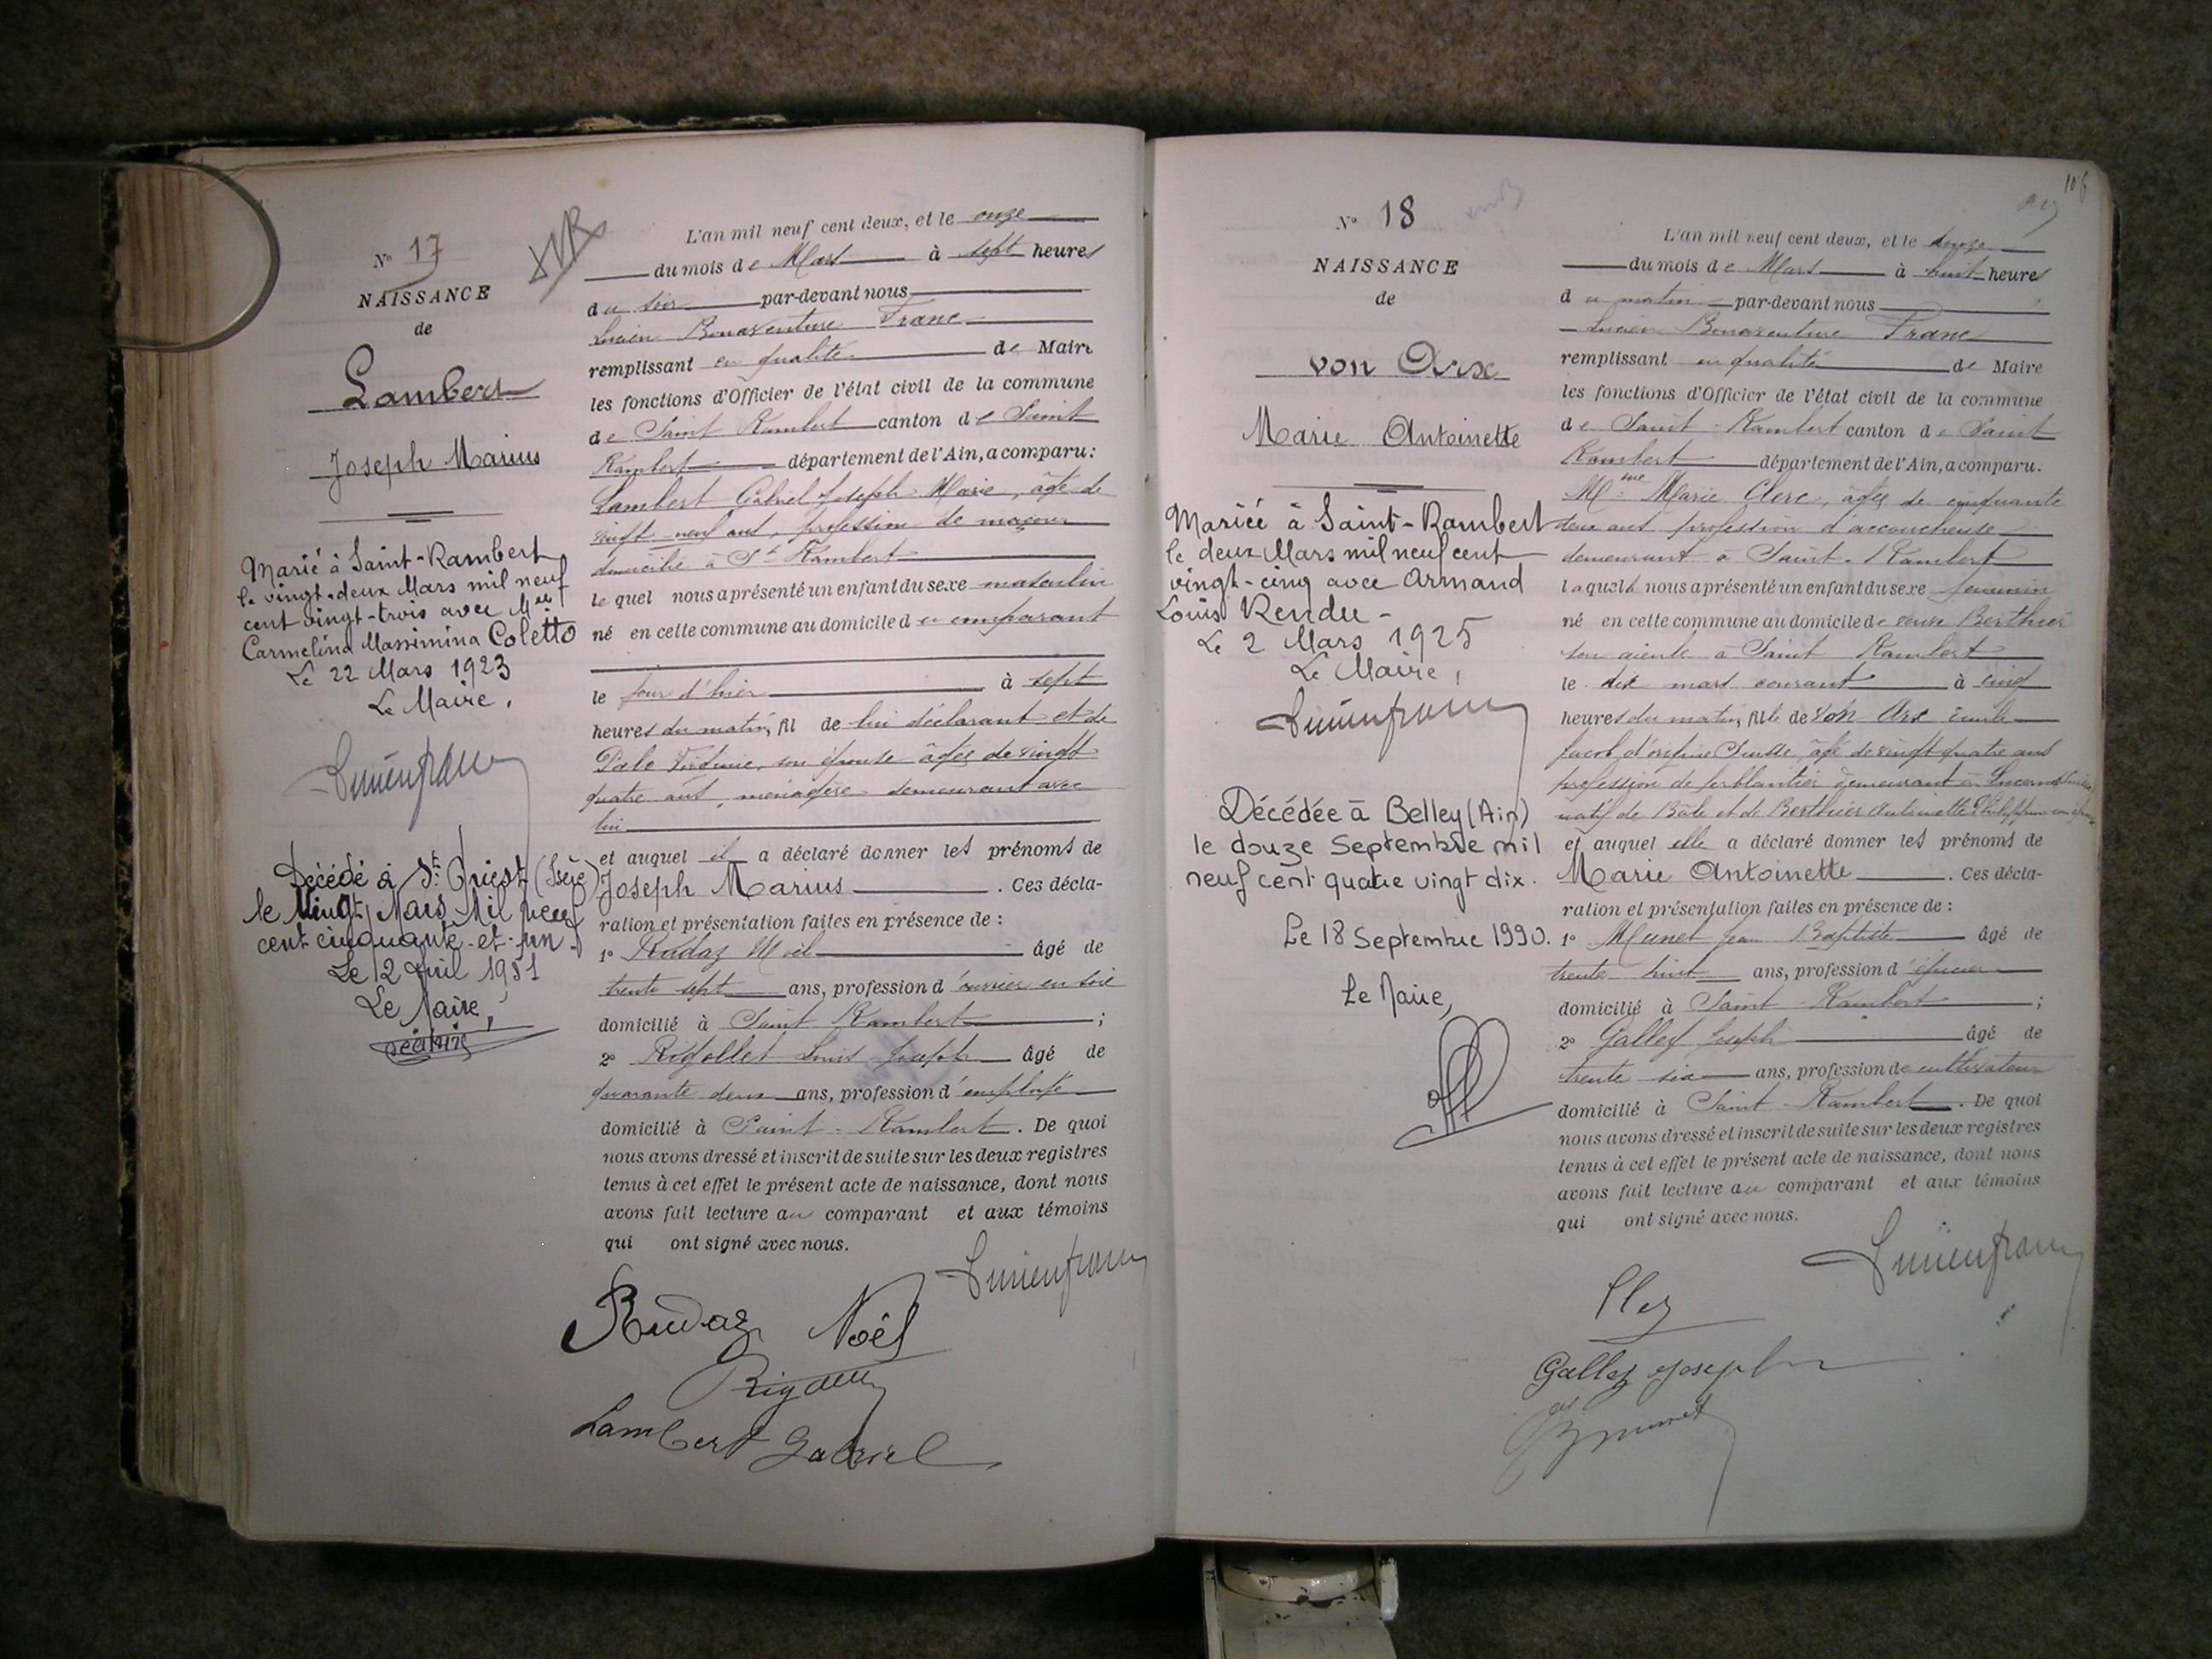 N° 17
NAISSANCE
de
Lambert
Joseph Marius
Marié à Saint-Rambert
le vingt-deux Mars mil neuf
cent vingt-trois avec Melle
Carmelina Massimina Coletto
Le 22 Mars 1923
Le Maire,
Lucien franc
Décédé à St Priest (Isère)
le Vingt Mars Mil neuf
cent cinquante-et-un
Le 12 Avril 1951
Le Maire,
L'an mil neuf cent deux, et le onze
du mois de Mars à sept heures
du soir par-devant nous
Lucien Bonaventure Franc
remplissant en qualité de Maire
les fonctions d'Officier de l'état civil de la commune
de Saint Rambert canton de Saint
Rambert département de l'Ain, a comparu:
Lambert Gabriel Joseph Marie, âgé de
vingt-neuf ans, profession de maçon
domicilié à St Rambert
lequel nous a présenté un enfant du sexe masculin
né en cette commune au domicile du comparant
le jour d'hier à sept
heures du matin, fil de lui déclarant et de
son épouse âgée de vingt
quatre ans, ménagère demeurant avec
lui
et auquel il a déclaré donner les prénoms de
Joseph Marius. Ces décla-
ration et présentation faites en présence de :
1° Rudaz Noël âgé de
trente sept ans, profession d'ouvrier en soie
domicilié à Saint Rambert ;
2° Rigollet Louis Joseph âgé de
quarante deux ans, profession d'employé
domicilié à Saint-Rambert. De quoi
nous avons dressé et inscrit de suite sur les deux registres
tenus à cet effet le présent acte de naissance, dont nous
avons fait lecture au comparant et aux témoins
qui ont signé avec nous.
Lucien franc
Rudaz Noël
Lambert Gabriel
106
N° 18
NAISSANCE
de
von Arx
Marie Antoinette
Mariée à Saint-Rambert
le deux Mars mil neuf cent
vingt-cinq avec Armand
Louis Rendu -
Le 2 Mars 1925
Le Maire,
Lucien franc
Décédée à Belley (Ain)
le douze Septembre mil
neuf cent quatre vingt dix.
Le 18 Septembre 1990.
Le Maire,
L'an mil neuf cent deux, et le douze
du mois de Mars à huit heures
du matin par-devant nous
Lucien Bonaventure Franc
remplissant en qualité de Maire
les fonctions d'Officier de l'état civil de la commune
de Saint-Rambert canton de Saint
Rambert département de l'Ain, a comparu.
Mme Marie Clerc, âgée de cinquante
deux ans profession d'accoucheuse
demeurant à Saint-Rambert
laquelle nous a présenté un enfant du sexe féminin
né en cette commune au domicile de veuve Berthier
son aïeule à Saint Rambert
le dix mars courant à cinq
heures du matin, fille de von Arx Emile
Jacob d'origine Suisse, âgé de vingt quatre ans
profession de ferblantier demeurant à Lucerne Suisse
natif de Bâle et de Berthier Antoinette Philippine
et auquel elle a déclaré donner les prénoms de
Marie Antoinette. Ces décla-
ration et présentation faites en présence de :
1° Munet Jean Baptiste âgé de
trente huit ans, profession d'épicier
domicilié à Saint-Rambert ;
2° Galley Joseph âgé de
trente six ans, profession de cultivateur
domicilié à Saint-Rambert. De quoi
nous avons dressé et inscrit de suite sur les deux registres
tenus à cet effet le présent acte de naissance, dont nous
avons fait lecture au comparant et aux témoins
qui ont signé avec nous.
Lucien franc
Galley Joseph